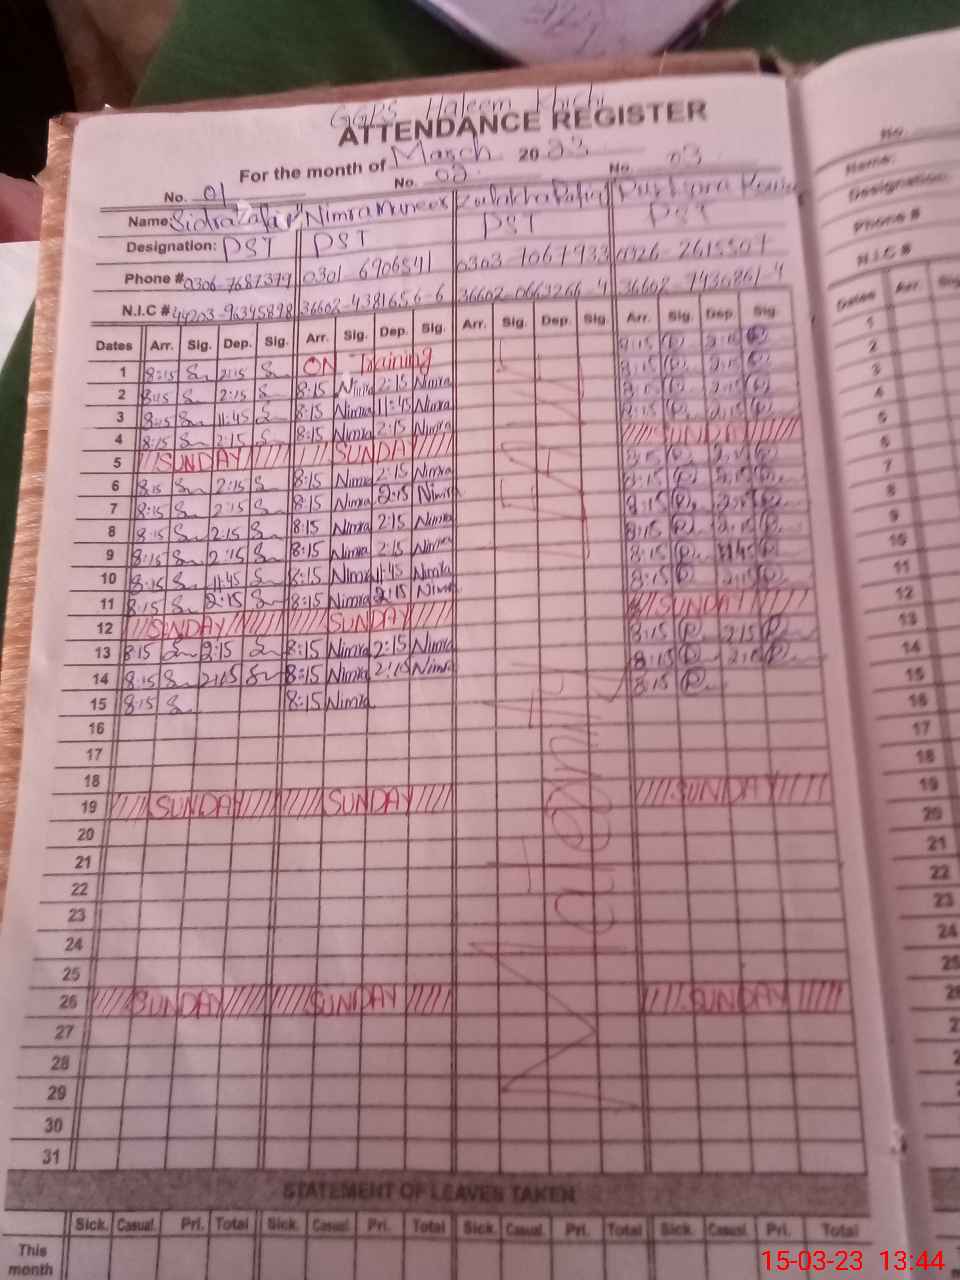 GGPS Haleem Khichi
ATTENDANCE REGISTER
For the month of March 20 23
No. 01 No. 02 No. 03
Name: Sidra Zafar Nimra Muneer Zulakha Rafiq
Designation: PST PST PST PST
Phone # 0306-7687379 0301-6906541 0303-7067933 0326-2615507
N.I.C # 44203-96345898 36602-4381656-6 36602-0663266-4 36602-7436861-4
Dates Arr. Sig. Dep. Sig. Arr. Sig. Dep. Sig. Arr. Sig. Dep. Sig. Arr. Sig. Dep. Sig.
1 8:15 2:15 ON Training 8:15 2:15
2 8:15 2:15 8:15 Nimra 2:15 Nimra 8:15 2:15
3 8:15 11:45 8:15 Nimra 11:45 Nimra 8:15
4 8:15 2:15 8:15 Nimra 2:15 Nimra 8:15 2:15
5 SUNDAY SUNDAY SUNDAY
6 8:15 2:15 8:15 Nimra 2:15 Nimra 8:15 2:15
7 8:15 2:15 8:15 Nimra 2:15 Nimra 8:15 2:15
8 8:15 2:15 8:15 Nimra 2:15 Nimra 8:15 2:15
9 8:15 2:15 8:15 Nimra 2:15 Nimra 8:15 2:15
10 8:15 11:45 8:15 Nimra 11:45 Nimra 8:15 11:45
11 8:15 2:15 8:15 Nimra 2:15 Nimra 8:15 2:15
12 SUNDAY SUNDAY SUNDAY
13 8:15 2:15 8:15 Nimra 2:15 Nimra 8:15 2:15
14 8:15 2:15 8:15 Nimra 2:15 Nimra 8:15 2:15
15 8:15 8:15 Nimra 8:15
16
17
18
19 SUNDAY SUNDAY SUNDAY
20
21
22
23
24
25
26 SUNDAY SUNDAY SUNDAY
27
28
29
30
31
Maternity
STATEMENT OF LEAVES TAKEN
Sick. Casual. Pri. Total Sick. Casual. Pri. Total Sick. Casual. Pri. Total Sick. Casual. Pri. Total
This month
No.
Name:
Designation
Phone #
N.I.C #
Dates Arr. Sig
1
2
3
4
5
6
7
8
9
10
11
12
13
14
15
16
17
18
19
20
21
22
23
24
25
15-03-23 13:44